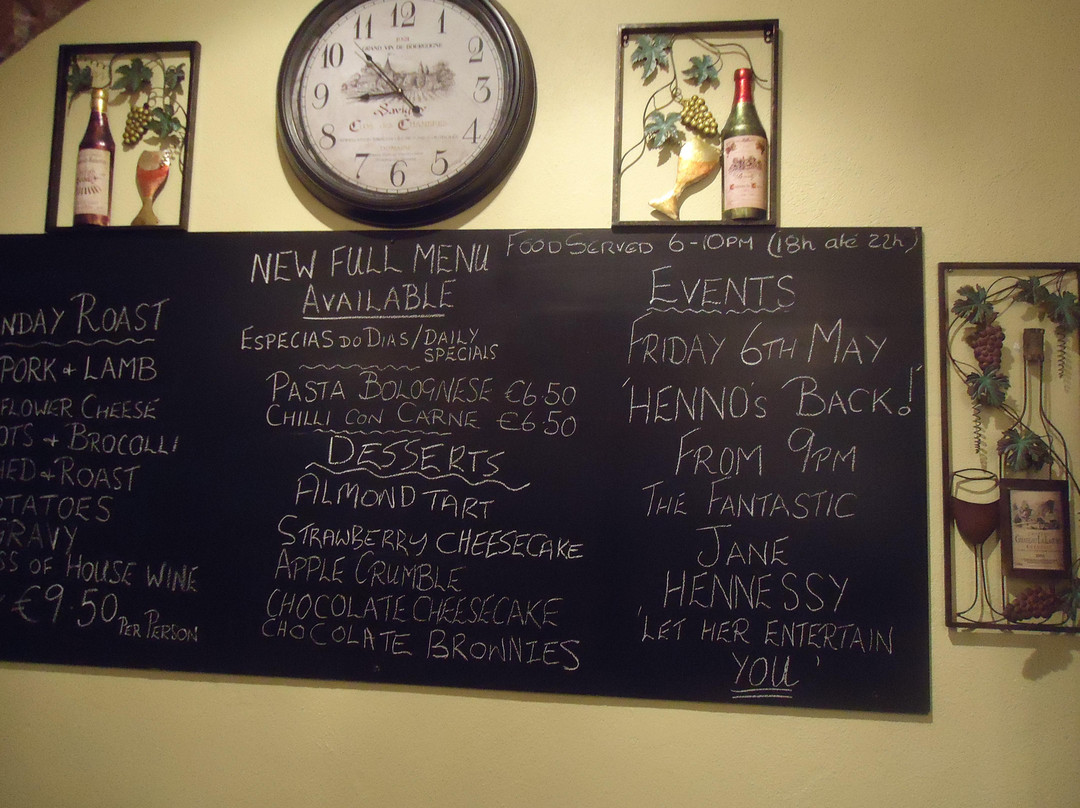 12
1
2
3
4
5
6
7
8
9
10
11
GRAND VIN DE BOURGOGNE
Savigny
NDAY ROAST
PORK + LAMB
FLOWER CHEESE
OTS + BROCOLLI
HED + ROAST
OTATOES
GRAVY
SS OF HOUSE WINE
€9.50 PER PERSON
NEW FULL MENU
AVAILABLE
ESPECIAS DO DIAS/DAILY
SPECIALS
PASTA BOLOGNESE €6.50
CHILLI CON CARNE €6.50
DESSERTS
ALMOND TART
STRAWBERRY CHEESECAKE
APPLE CRUMBLE
CHOCOLATE CHEESECAKE
CHOCOLATE BROWNIES
FOOD SERVED 6-10PM (18h até 22h)
EVENTS
FRIDAY 6TH MAY
'HENNO'S BACK!'
FROM 9PM
THE FANTASTIC
JANE
HENNESSY
'LET HER ENTERTAIN
YOU'